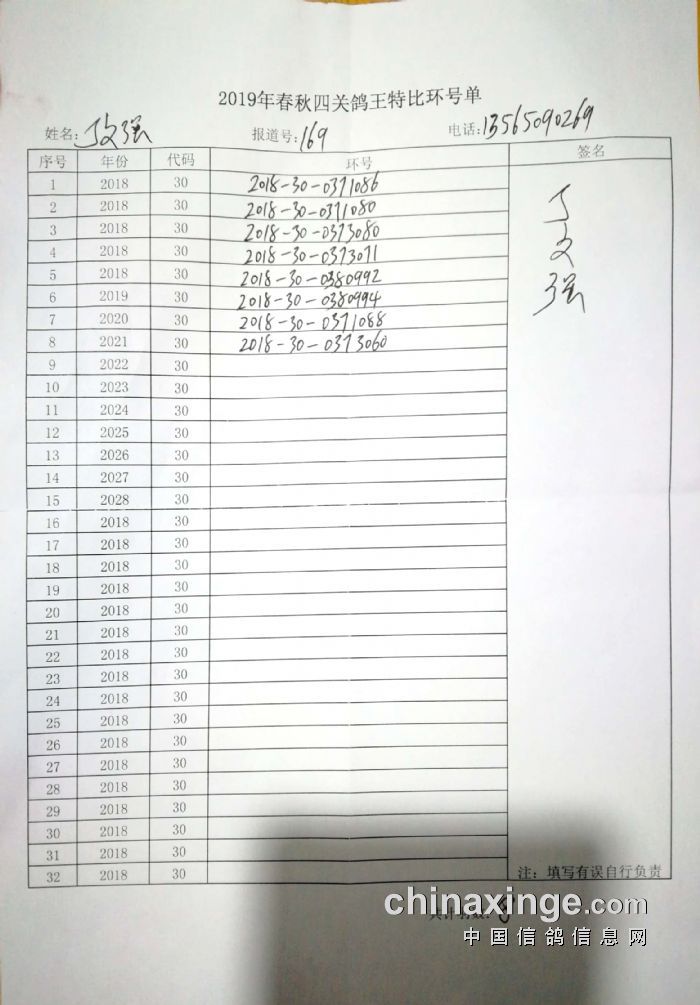 2019年春秋四关鸽王特比环号单
姓名: 丁文强 报道号: 169 电话: 13565090269
序号 年份 代码 环号 签名
1 2018 30 2018-30-0371086
2 2018 30 2018-30-0371080
3 2018 30 2018-30-0373080
4 2018 30 2018-30-0373071
5 2018 30 2018-30-0380992
6 2019 30 2018-30-0380994
7 2020 30 2018-30-0371088
8 2021 30 2018-30-0373060
丁文强
9 2022 30
10 2023 30
11 2024 30
12 2025 30
13 2026 30
14 2027 30
15 2028 30
16 2018 30
17 2018 30
18 2018 30
19 2018 30
20 2018 30
21 2018 30
22 2018 30
23 2018 30
24 2018 30
25 2018 30
26 2018 30
27 2018 30
28 2018 30
29 2018 30
30 2018 30
31 2018 30
32 2018 30
注：填写有误自行负责
chinaxinge.com
中国信鸽信息网